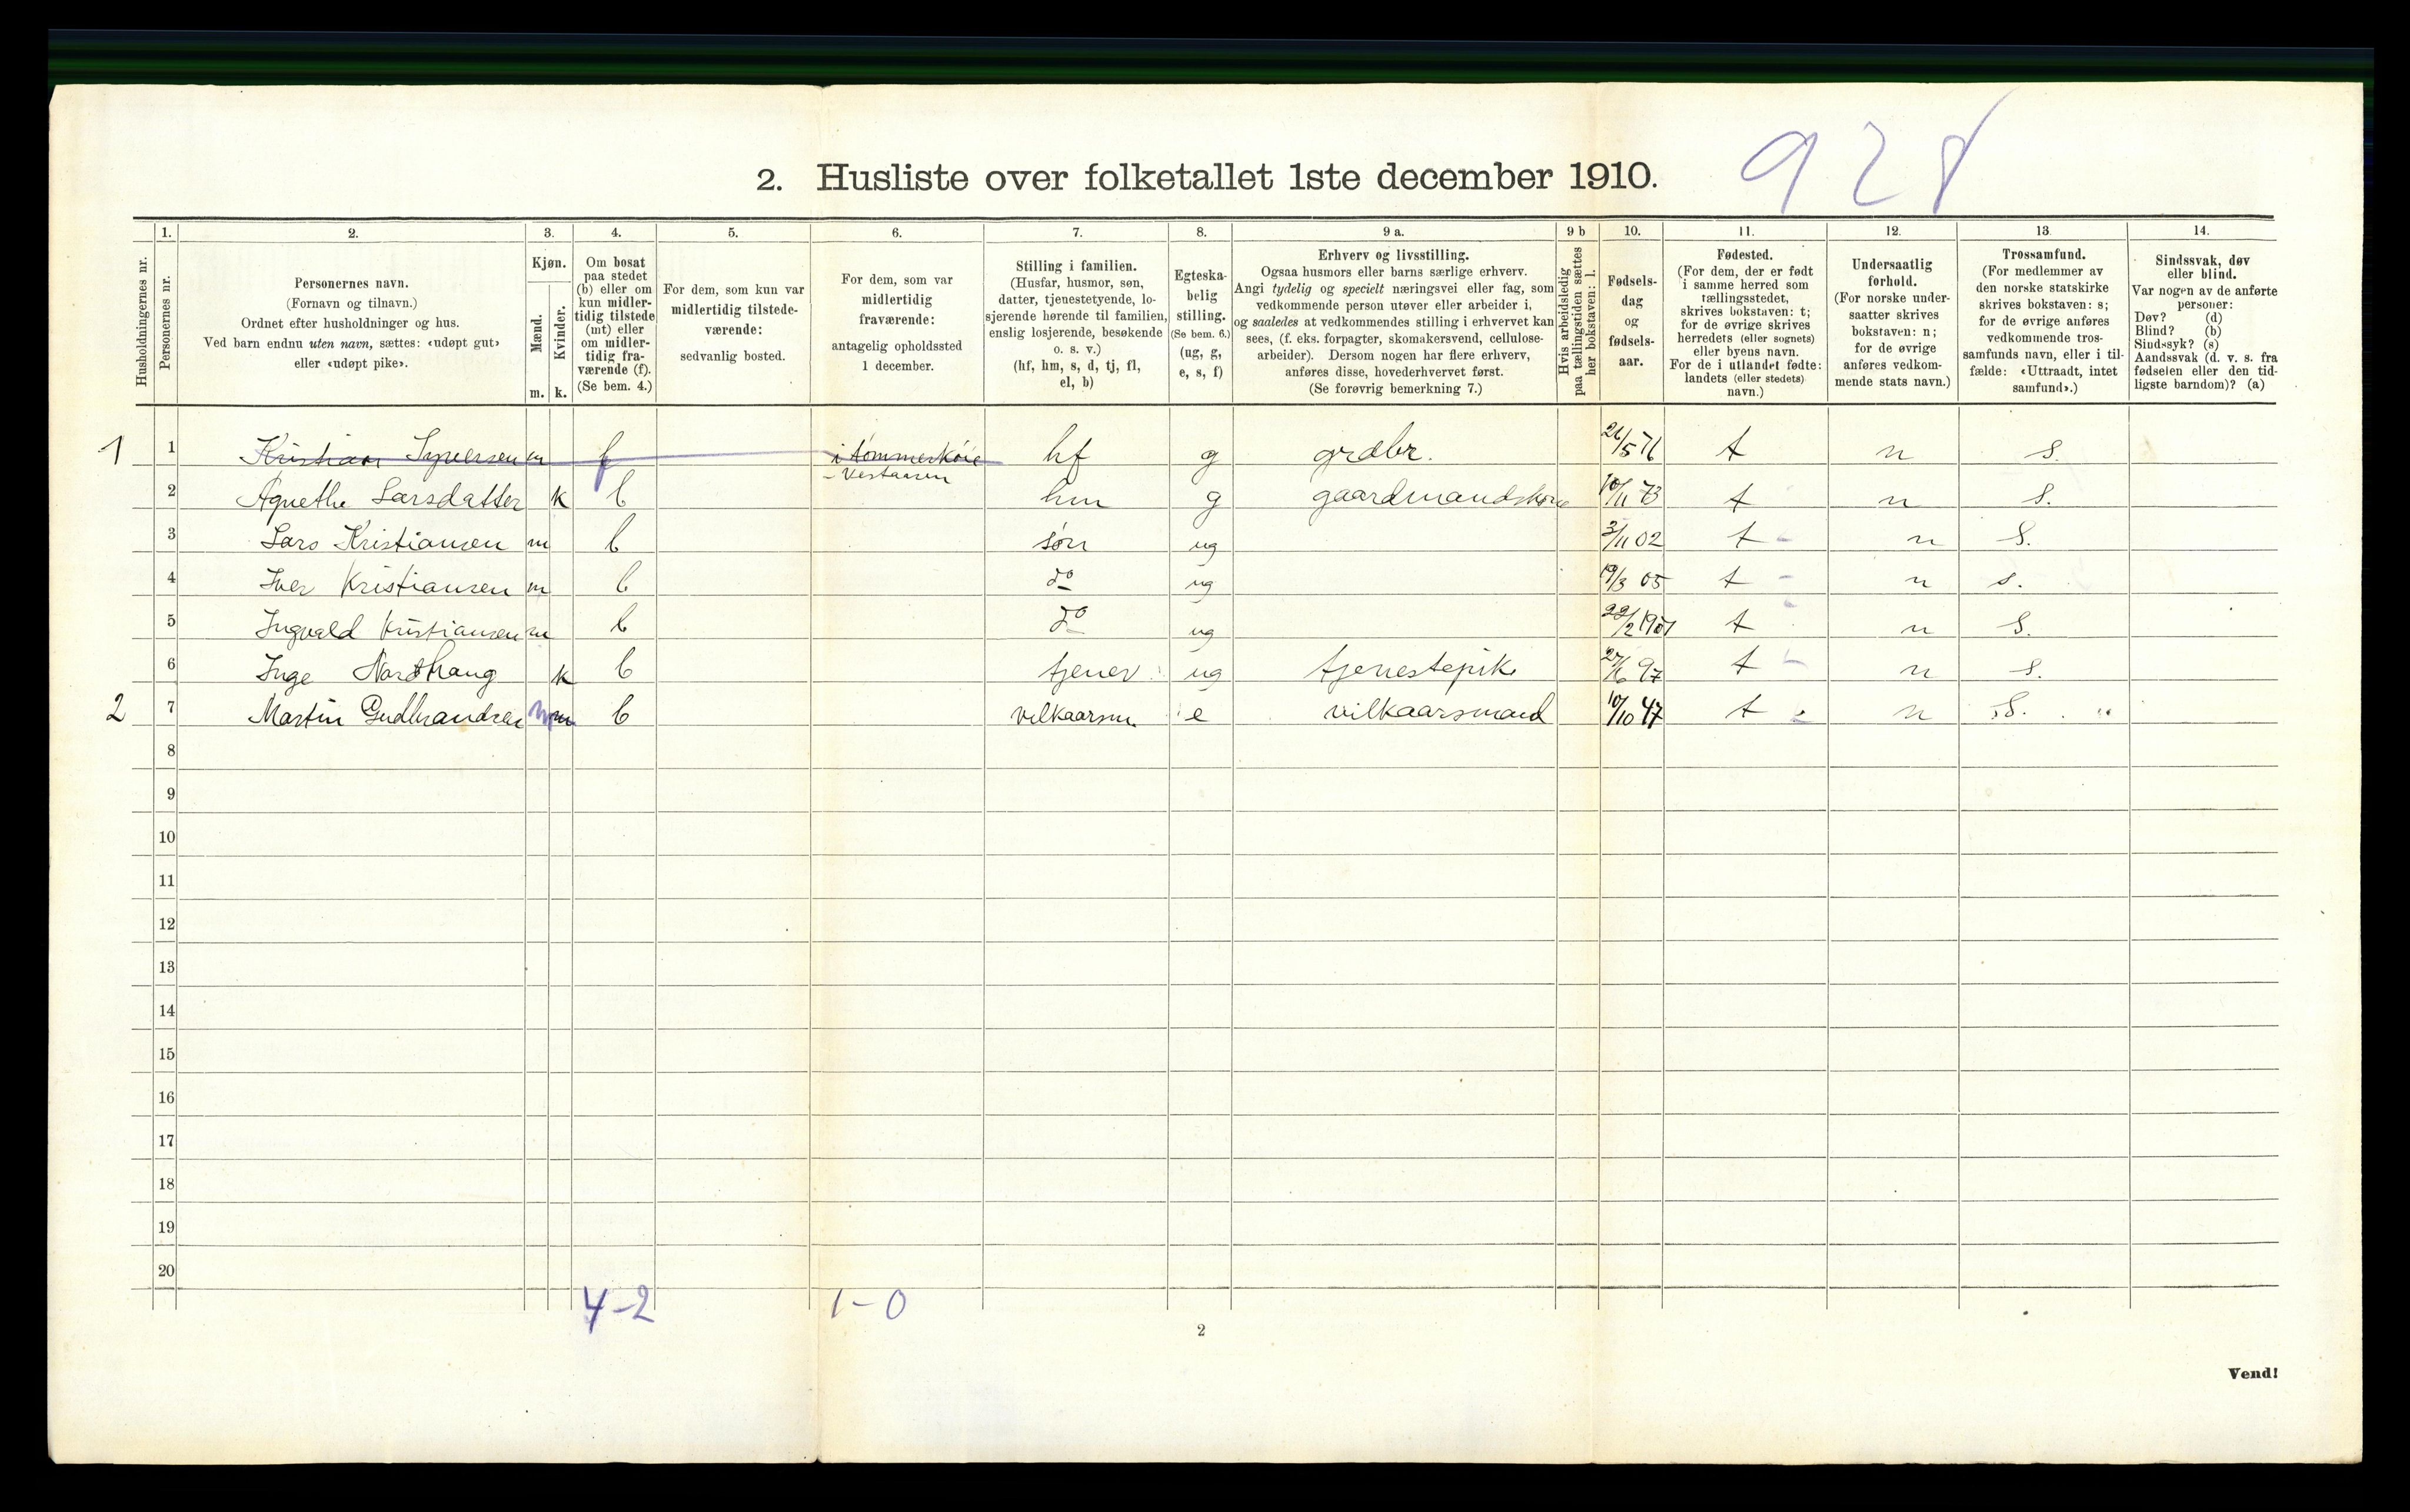 928
2. Husliste over folketallet 1ste december 1910.
Husholdningernes nr.
1.
Personernes nr.
2.
Personernes navn.
(Fornavn og tilnavn.)
Ordnet efter husholdninger og hus.
Ved barn endnu uten navn, sættes: «udøpt gut»
eller «udøpt pike».
3.
Kjøn.
Mænd.
Kvinder.
m. k.
4.
Om bosat
paa stedet
(b) eller om
kun midler-
tidig tilstede
(mt) eller
om midler-
tidig fra-
værende (f).
(Se bem. 4.)
5.
For dem, som kun var
midlertidig tilstede-
værende:
sedvanlig bosted.
6.
For dem, som var
midlertidig
fraværende:
antagelig opholdssted
1 december.
7.
Stilling i familien.
(Husfar, husmor, søn,
datter, tjenestetyende, lo-
sjerende hørende til familien,
enslig losjerende, besøkende
o. s. v.)
(hf, hm, s, d, tj, fl,
el, b)
8.
Egteska-
belig
stilling.
(Se bem. 6.)
(ug, g,
e, s, f)
9 a.
Erhverv og livsstilling.
Ogsaa husmors eller barns særlige erhverv.
Angi tydelig og specielt næringsvei eller fag, som
vedkommende person utøver eller arbeider i,
og saaledes at vedkommendes stilling i erhvervet kan
sees, (f. eks. forpagter, skomakersvend, cellulose-
arbeider). Dersom nogen har flere erhverv,
anføres disse, hovederhvervet først.
(Se forøvrig bemerkning 7.)
9 b
Hvis arbeidsledig
paa tællingstiden sættes
her bokstaven: l.
10.
Fødsels-
dag
og
fødsels-
aar.
11.
Fødested.
(For dem, der er født
i samme herred som
tællingsstedet,
skrives bokstaven: t;
for de øvrige skrives
herredets (eller sognets)
eller byens navn.
For de i utlandet fødte:
landets (eller stedets)
navn.)
12.
Undersaatlig
forhold.
(For norske under-
saatter skrives
bokstaven: n;
for de øvrige
anføres vedkom-
mende stats navn.)
13.
Trossamfund.
(For medlemmer av
den norske statskirke
skrives bokstaven: s;
for de øvrige anføres
vedkommende tros-
samfunds navn, eller i til-
fælde: «Uttraadt, intet
samfund».)
14.
Sindssvak, døv
eller blind.
Var nogen av de anførte
personer:
Døv? (d)
Blind? (b)
Sindssyk? (s)
Aandssvak (d. v. s. fra
fødselen eller den tid-
ligste barndom)? (a)
1 1 Kristian Syversen m f i tømmerkøie hf g grdbr. 5 76 t n s.
- Vestaasen
2 Agnethe Larsdatter k b hm g gaardmandskone 10/11 73 t n s.
3 Lars Kristiansen m b søn ug 3/11 02 t - n s.
4 Iver Kristiansen m b do ug 19/3 05 t - n s.
5 Ingvald Kristiansen m b do ug 22/2 1907 t n s.
6 Inge Nordhaug k b tjener ug tjenestepike 27/6 97 t - n s.
2 7 Martin Gudbrandsen m b vilkaarsm e vilkaarsmand 10/10 47 t - n s.
8
9
10
11
12
13
14
15
16
17
18
19
20
4-2 1-0
2
Vend!